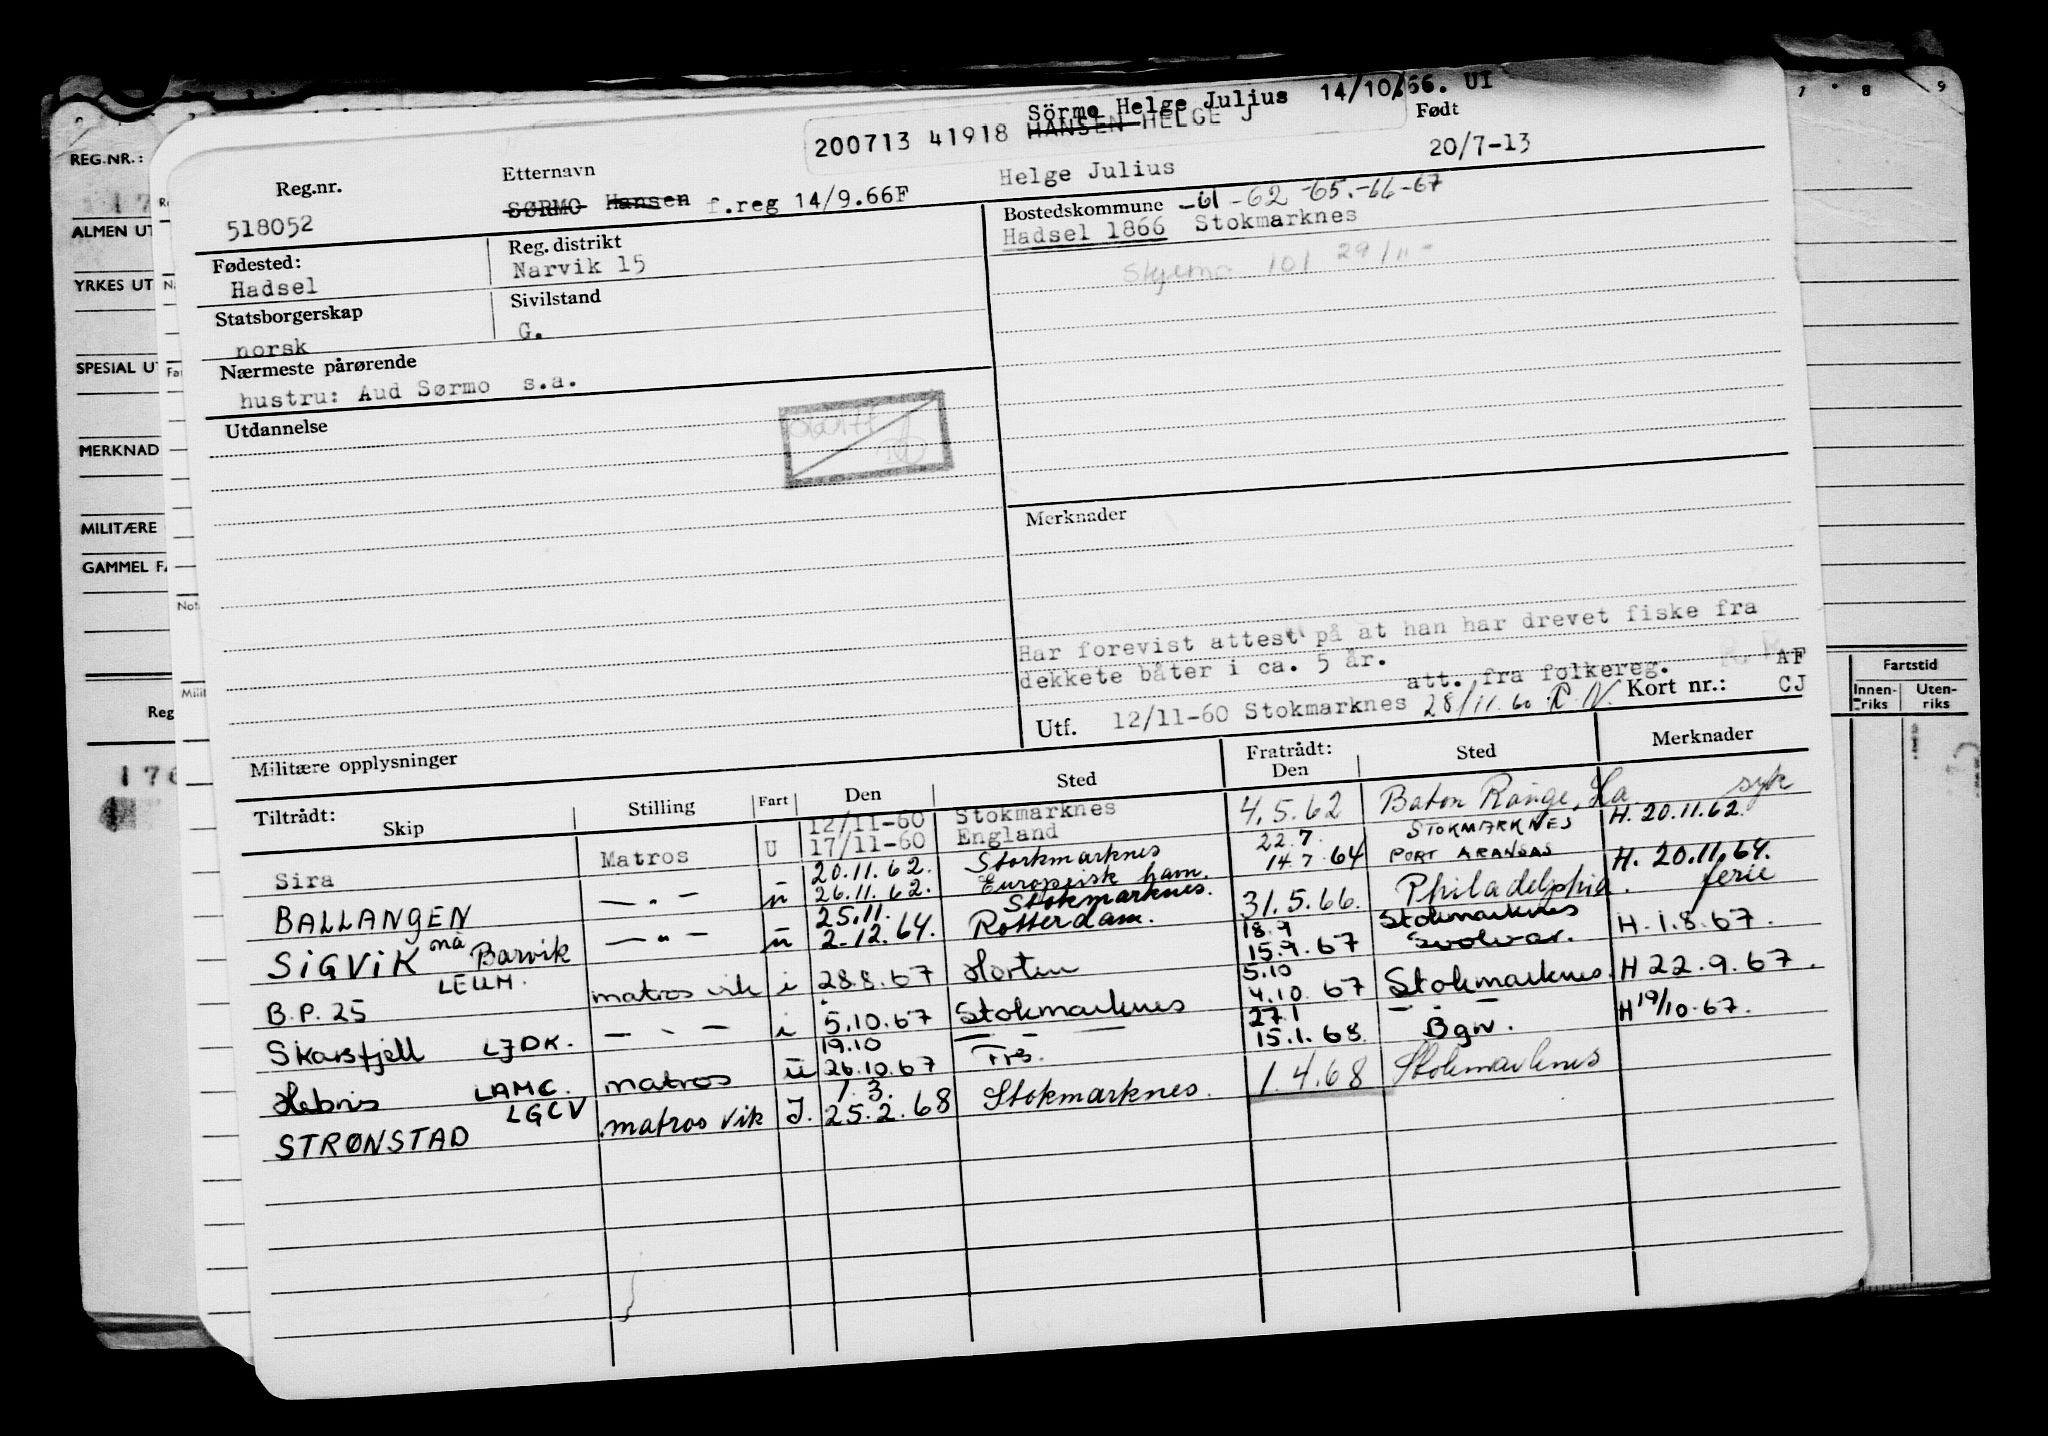 Sörmo Helge Julius 14/10/66. UI
200713 41918 HANSEN HELGE J
Født
Reg.nr.
Etternavn
Helge Julius
20/7-13
518052
SØRMO Hansen f.reg 14/9.66F
Bostedskommune -61-62-65.-66-67
Hadsel 1866 Stokmarknes
Fødested:
Hadsel
Reg. distrikt
Narvik 15
Skjema 101 29/11-
Statsborgerskap
norsk
Sivilstand
G.
Nærmeste pårørende
hustru: Aud Sørmo s.a.
Utdannelse
Merknader
Har forevist attest på at han har drevet fiske fra
dekkete båter i ca. 5 år.
att. fra folkereg.
AF
Utf. 12/11-60 Stokmarknes 28/11.60 Kort nr.: CJ
Militære opplysninger
Tiltrådt: Skip Stilling Fart Den Sted Fratrådt: Den Sted Merknader
12/11-60 Stokmarknes
Sira Matros U 17/11-60 England 4.5.62 Baton Rånge, La syk
20.11.62. Storkmarknes 22.7. STOKMARKNES H. 20.11.62.
BALLANGEN — " — u 26.11.62. Europeisk havn. 14.7.64 PORT ARANSAS
25.11. Stokmarknes. H. 20.11.64.
SIGVIK nå Barvik — " — u 2-12.64. Rotterdam. 31.5.66. Philadelphia. ferie
LEUM. 18.9 Stokmarknes
B.P. 25 matros vik i 28.8.67 Horten 15.9.67 Svolvær. H. 1.8.67.
5.10
Skarsfjell LJDK. — " — i 5.10.67 Stokmarknes 4.10.67 Stokmarknes. H 22.9.67.
19.10 — " — 27.1 — " —
Hebris LAMC. matros u 26.10.67 Frs. 15.1.68 Bgn. H 19/10.67.
LGCV 1.3.
STRØNSTAD matros vik I. 25.2.68 Stokmarknes. 1.4.68 Stokmarknes
REG.NR.:
ALMEN UT
YRKES UT
SPESIAL UT
MERKNAD
MILITÆRE
GAMMEL FA
Reg
176
Fartstid
Innen-riks
Uten-riks
7 8 9